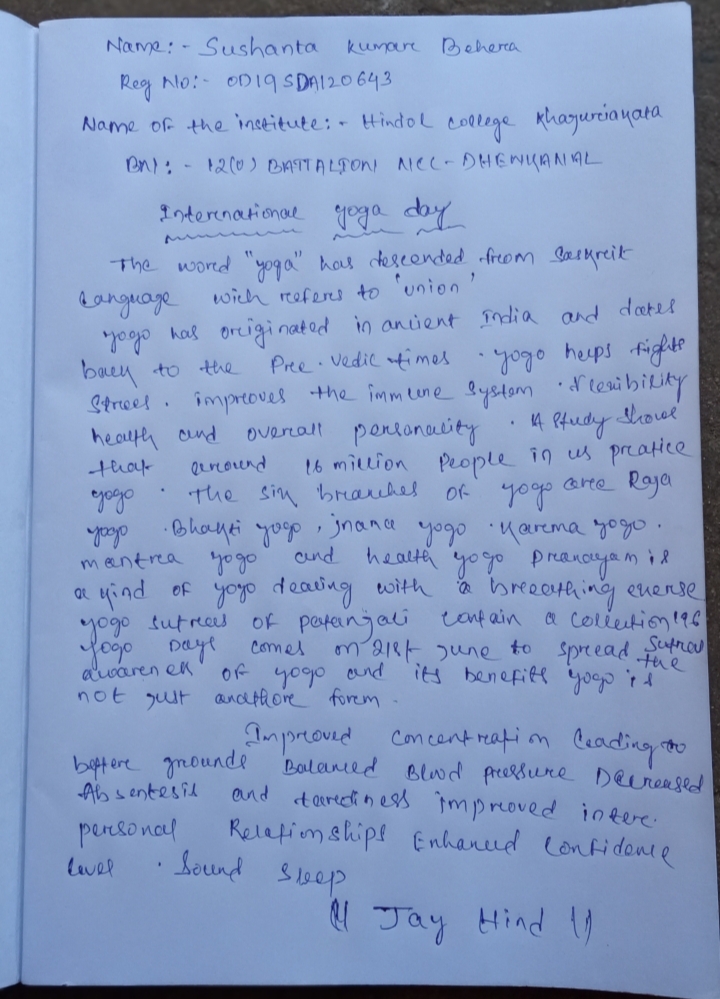 Name:- Sushanta Kumare Behera
Reg No:- OD19SDA120643
Name of the institute:- Hindol college Khajureiakata
BN:- 12(O) BATTALION NCC-DHENKANAL
International yoga day
The word "yoga" has descended from Saskreit
Language wich referes to 'union'
yogo has originated in ancient India and dates
back to the Pree. vedic times. yogo helps fights
Strees. improves the immune System. flexibility
health and overall personality. A Study Shows
that around 16 million People in us preatice
yogo. The six branches of yogo aree Raja
yogo. Bhakti yogo, jnana yogo. Karema yogo.
mantrea yogo and health yogo Pranayam is
a kind of yogo dealing with a breeathing exerse
yogo sutreas of patanjali contain a Collection 196
Sutreas
Yogo Days comes on 21st June to spread the
awarenes of yogo and its benefits yogo is
not just anathore forem.
Improved concentration leading to
bettere grounds Balanced Blood pressure Decreased
Absentesis and tarediness improved intere.
personal Relationships Enhanced Confidence
level. Sound Sleep
(( Jay Hind ))